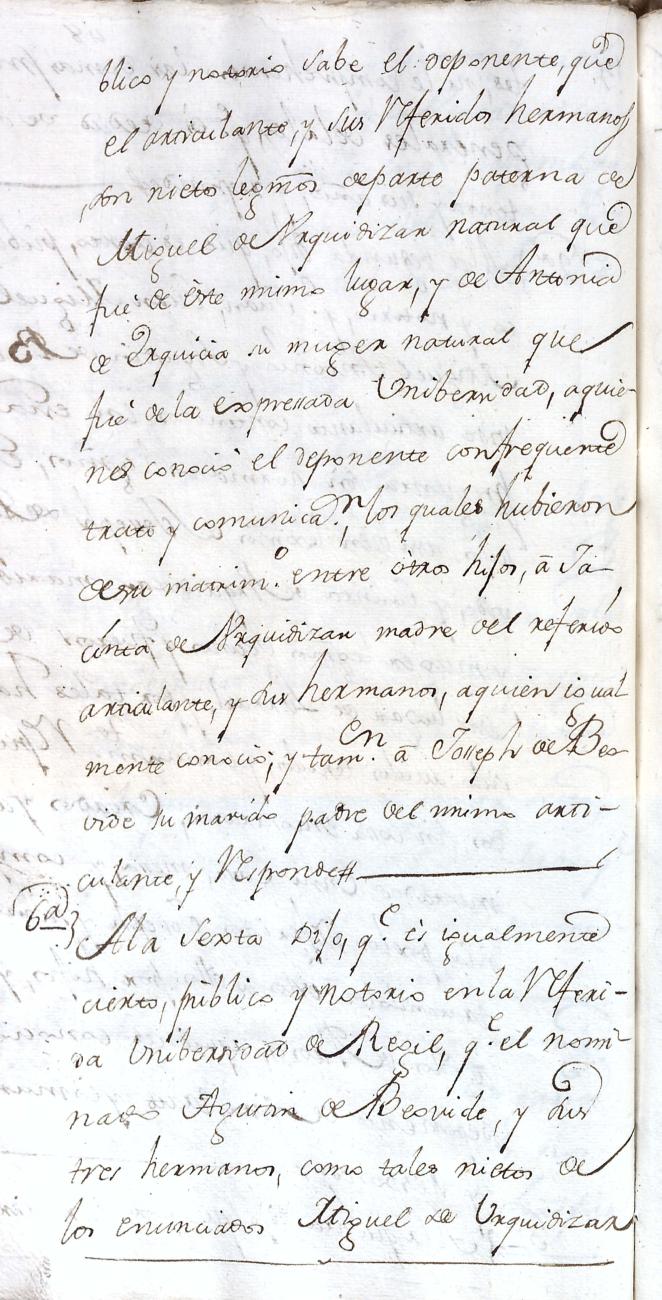 blico y notorio sabe el deponente, que
el articulante, y sus Referidos hermanos
son nieto legmōs. departe paterna de
Miguel de Urquidizar natural que
fué de éste mimo lugar, y de Antonia
de Erquicia su muger natural que
fué dela expressada Unibersidad, aquie-
nes conoció el deponente con frequente
trato y comunica.n, los quales hubieron
de su matrim.o entre otros hijos, â Ja-
cinta de Urquidizar madre del referido
articulante, y sus hermanos, aquien igual
mente conoció; y tam.en â Joseph de Beo
vide su marido padre del mimo arti-
culante, y Responde
6a} Ala Sexta Dijo, q.e és igualmente
cierto, público y notorio en la Referi-
da Unibersidad de Regil, q.e el nomi-
nado Agustin de Beovide, y sus
tres hermanos, como tales nietos de
los enunciados Miguel de Urquidizar